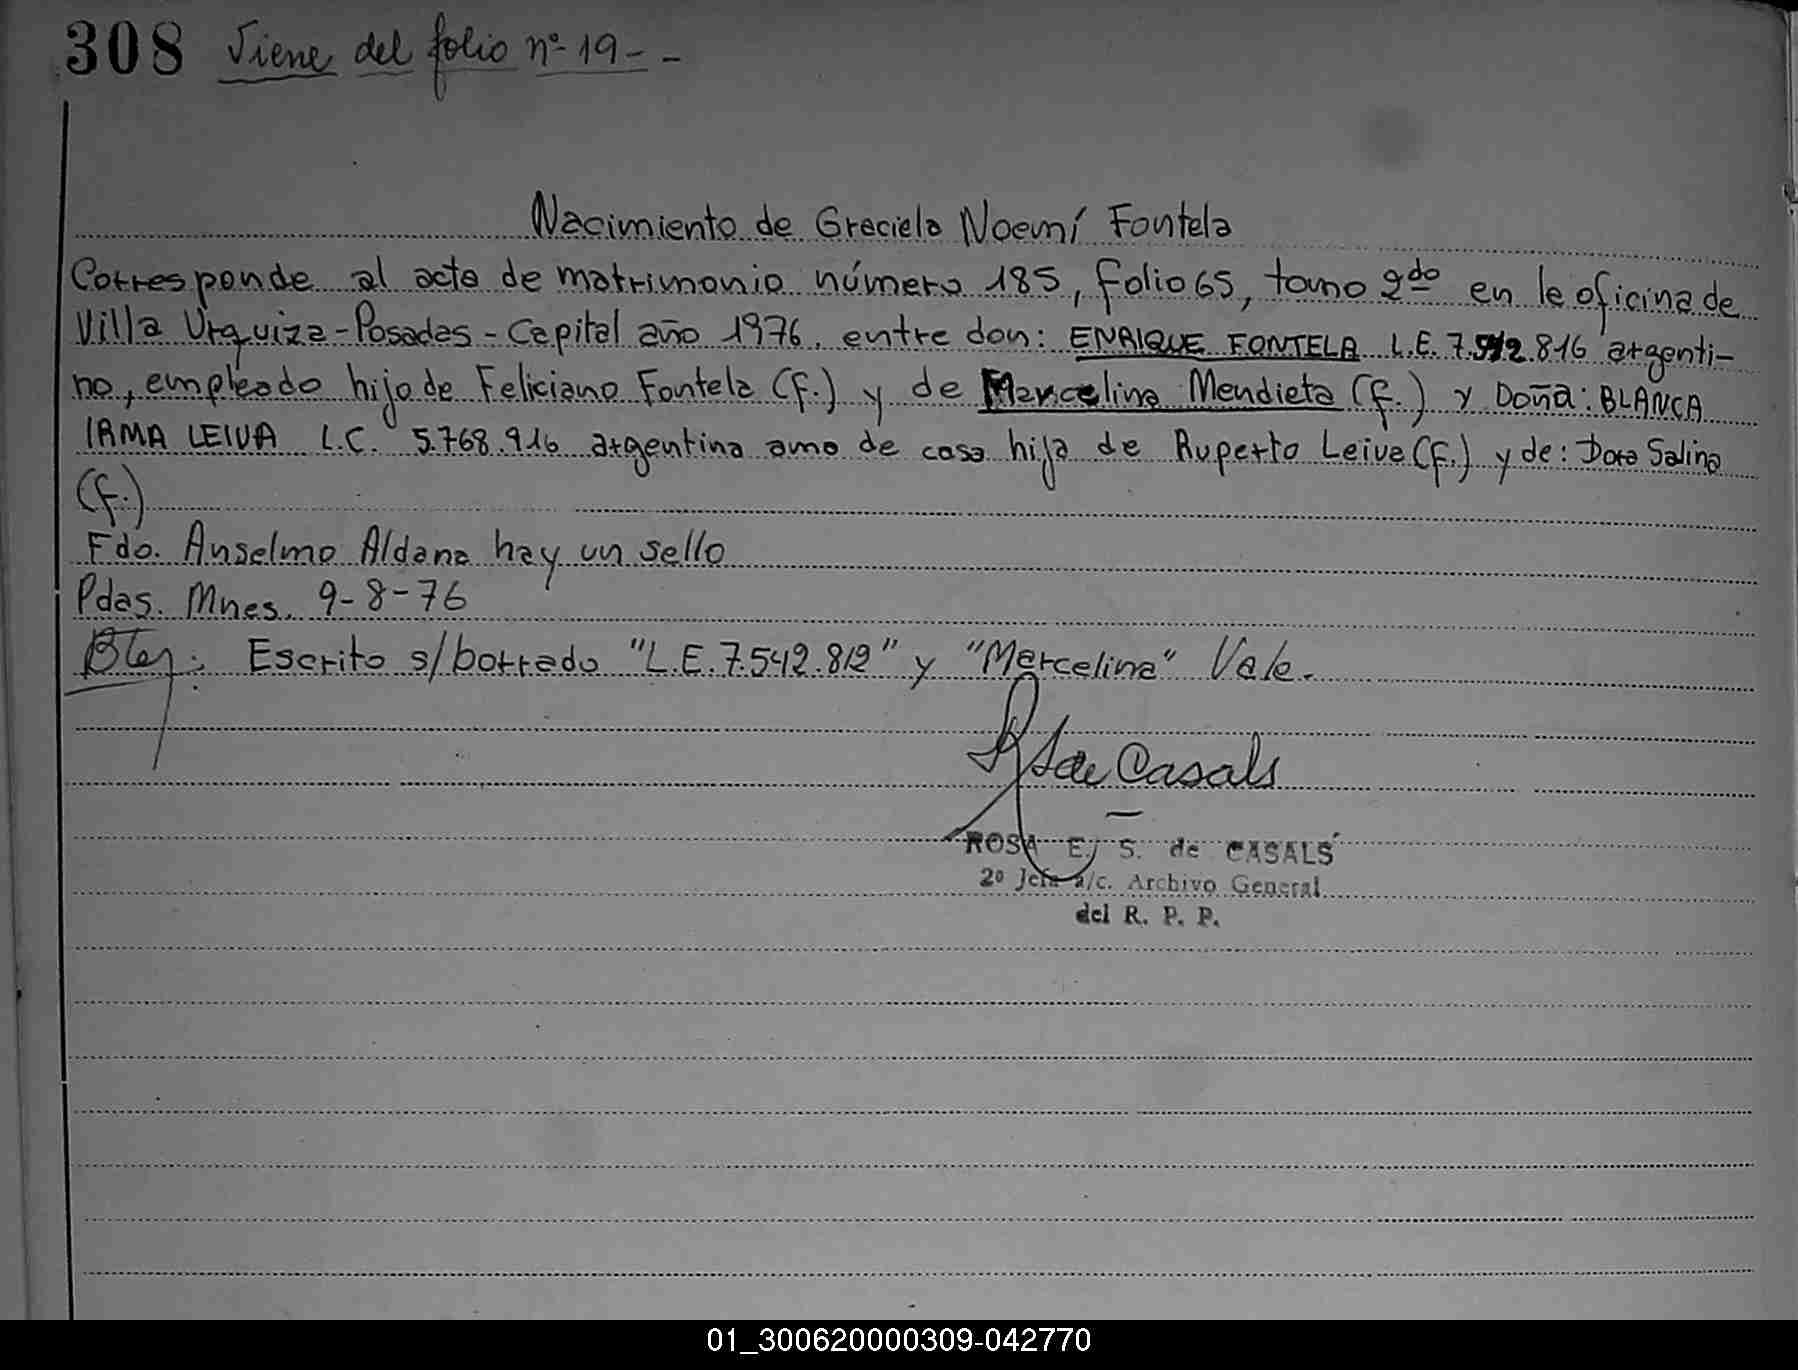 308 Viene del folio nº 19 - -
Nacimiento de Graciela Noemí Fontela
Corresponde al acta de matrimonio número 185, folio 65, tomo 2do en la oficina de
Villa Urquiza - Posadas - Capital año 1976. entre don: ENRIQUE FONTELA L.E. 7.542.816 argenti-
no, empleado hijo de Feliciano Fontela (f.) y de Marcelina Mendieta (f.) y Doña: BLANCA
IRMA LEIVA L.C. 5.768.916 argentina ama de casa hija de Ruperto Leiva (f.) y de: Dora Salina
(f.)
Fdo. Anselmo Aldana hay un sello
Pdas. Mnes. 9-8-76
Escrito s/borrado "L.E. 7.542.812" y "Marcelina" Vale.
de Casals
ROSA E. S. de CASALS
2º Jefa a/c. Archivo General
del R. P. P.
01_300620000309-042770